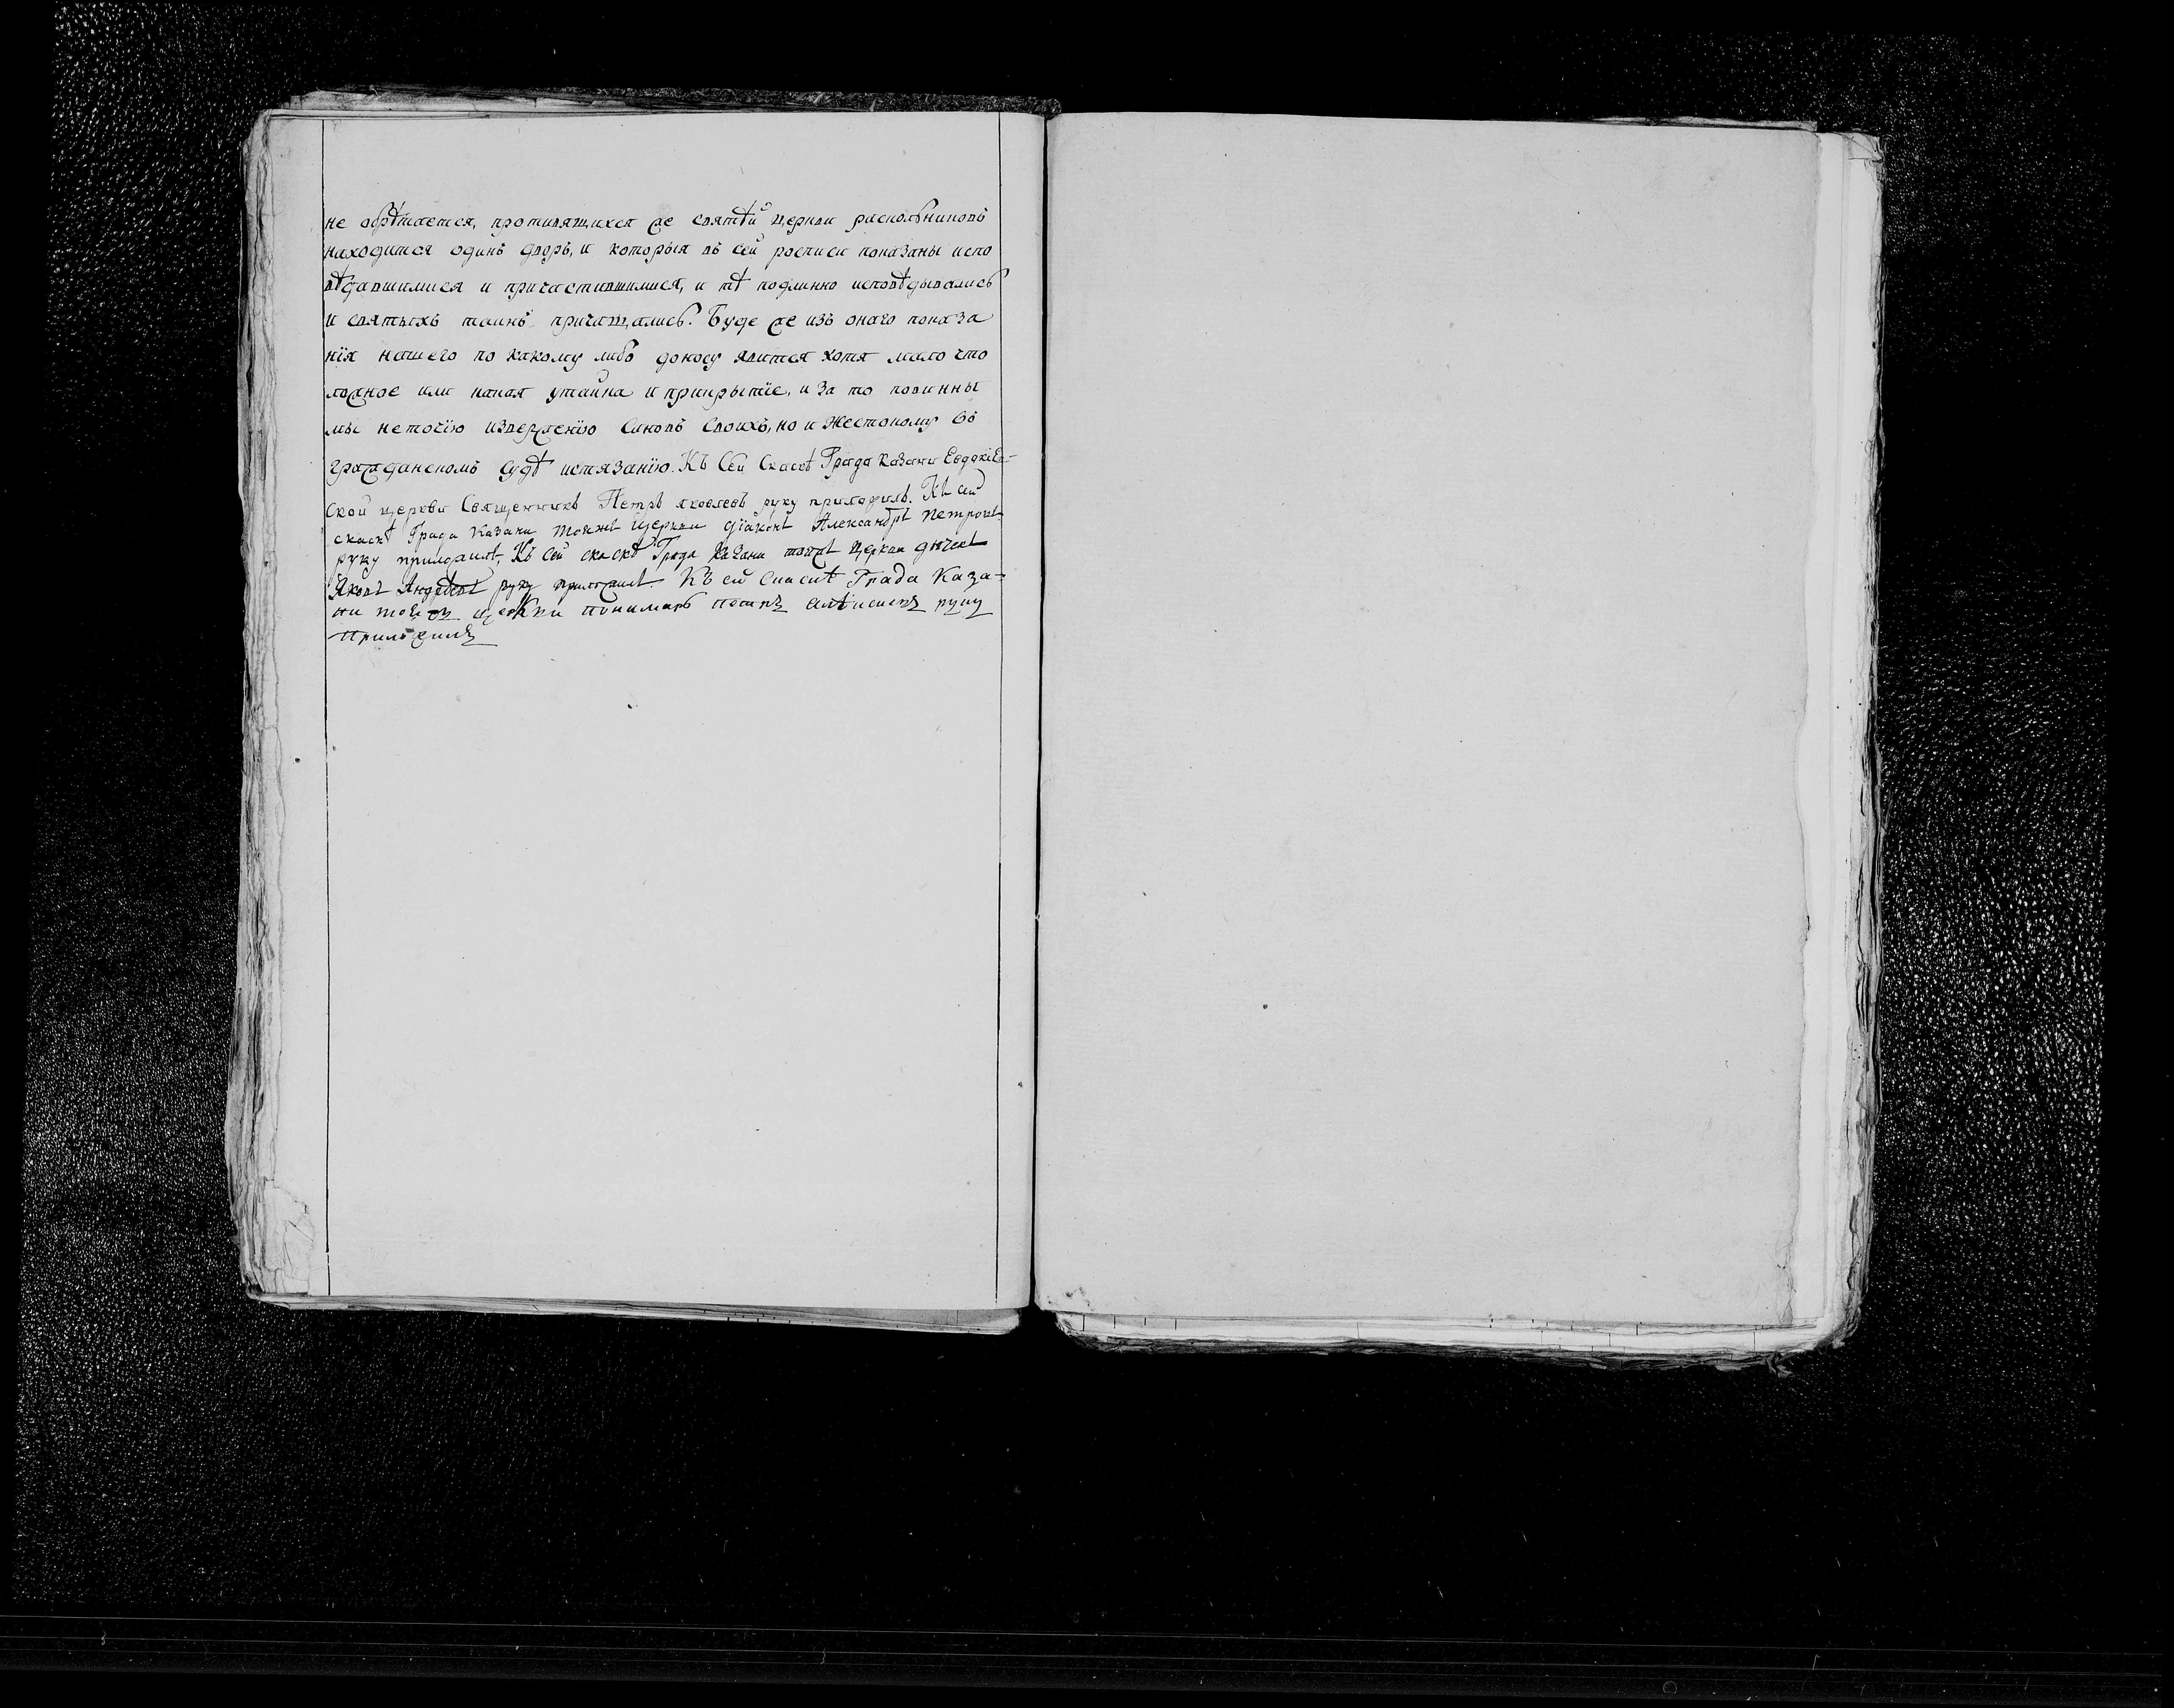 не обрѣтается, противящихся же святѣй церкви раскольниковъ
находится одинъ дворъ, и которыя въ сей росписи показаны испо
вѣдавшимися и причастившимися, и тѣ подлинно исповѣдывались
и святыхъ таинъ причащались. Буде же изъ онаго показа
нїя нашего по какому либо доносу явится хотя мало что
ложное или какая утайка и прикрытїе, и за то повинны
мы неточїю изверженїю сановъ своихъ, но и жестокому въ
гражданскомъ судѣ истязанїю. Къ сей скаскѣ Града Казани Евдокіев-
ской церкви Священникъ Петръ Яковлевъ руку приложилъ. Къ сей
скаскѣ Града Казани тояжъ церкви дїаконъ Александръ Петровъ
руку приложилъ, Къ сей скаскѣ Града Казани тояжъ церкви дьячекъ
Яковъ Андрѣевъ руку приложилъ. Къ сей скаскѣ Града Каза-
ни тойжъ церкви пономарь руку
приложилъ